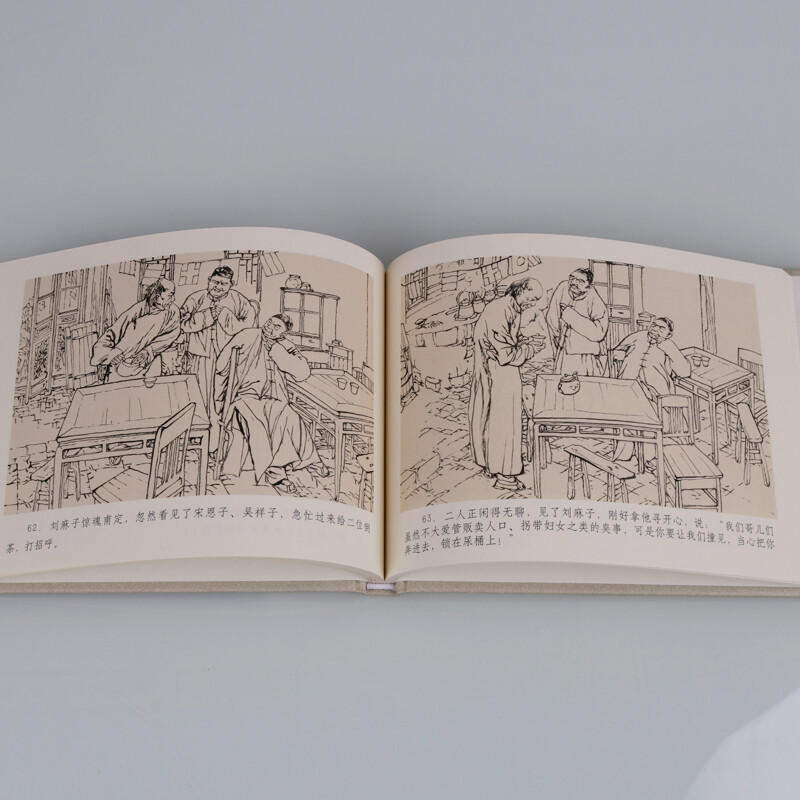 62. 刘麻子惊魂甫定，忽然看见了宋恩子、吴祥子，急忙过来给二位倒
茶，打招呼。
63. 二人正闲得无聊，见了刘麻子，刚好拿他寻开心，说：“我们哥儿们
虽然不大爱管贩卖人口、拐带妇女之类的臭事，可是你要让我们撞见，当心把你
弄进去，锁在尿桶上！”